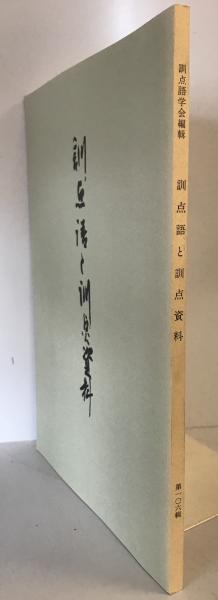 訓点語と訓点資料
訓点語学会編輯
訓点語と訓点資料
第一〇六輯